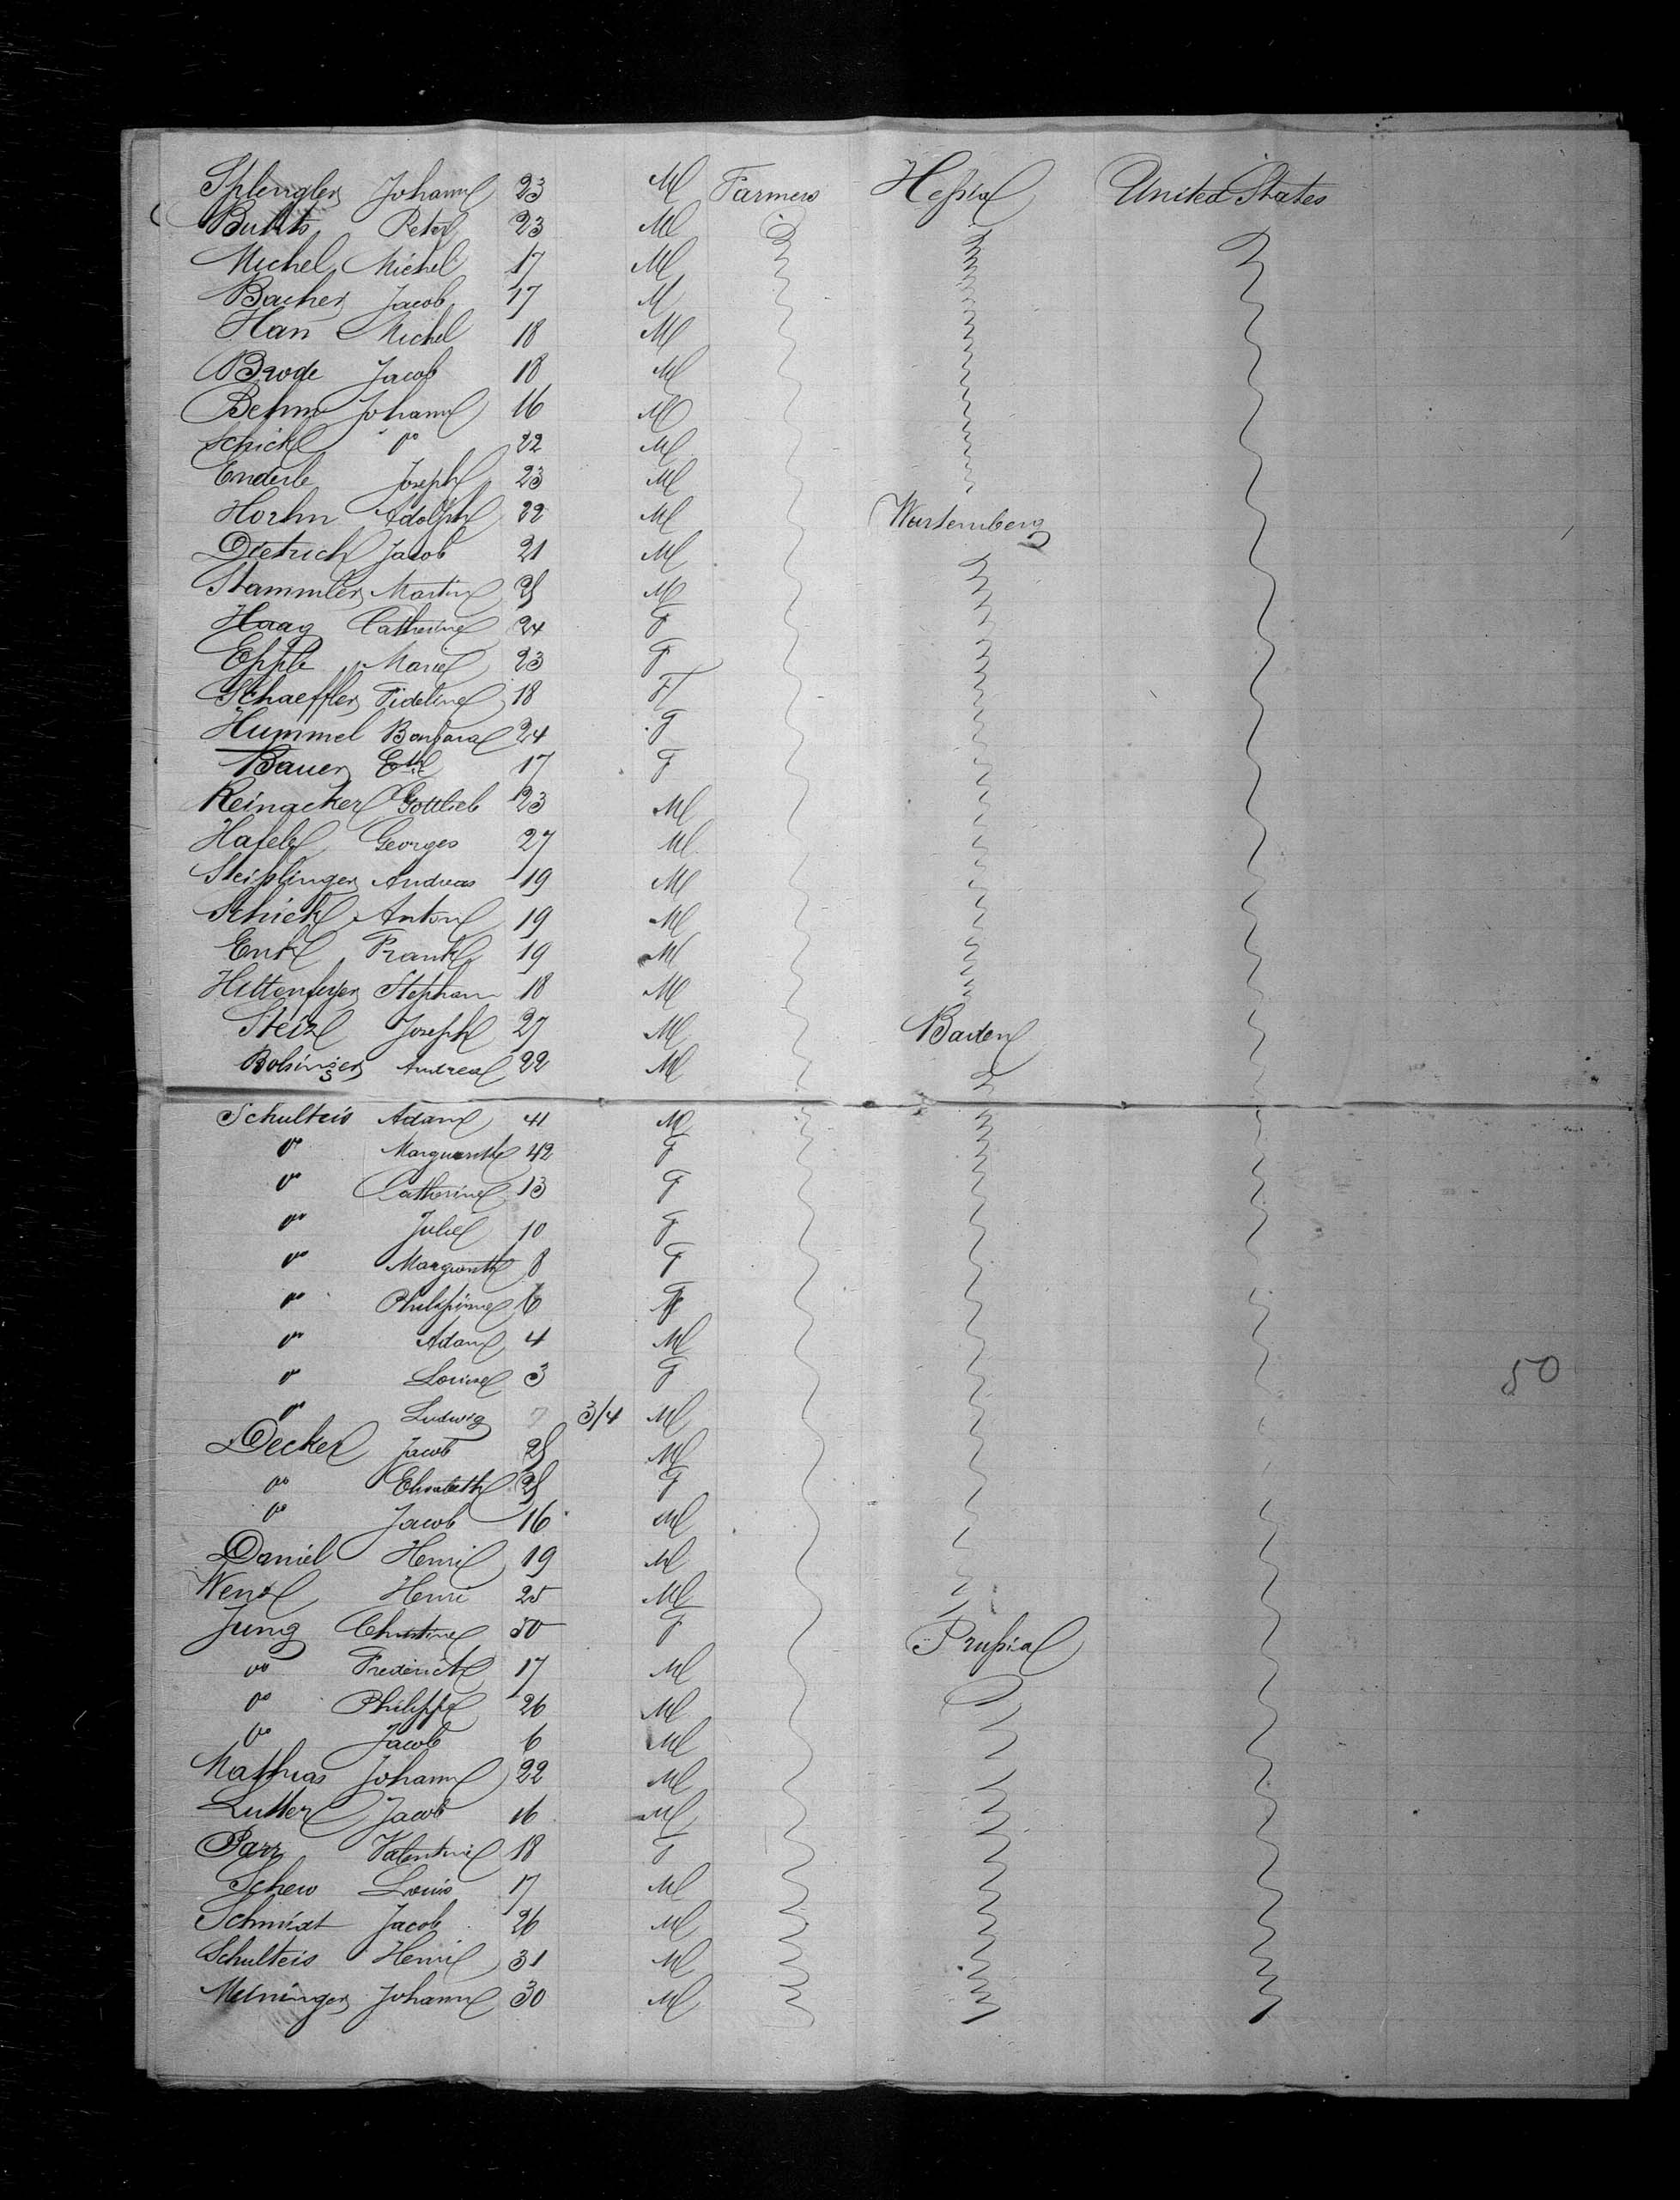 Splengler Johann 23 M Farmers Hessia United States
Butits Peter 23 M
Michel Michel 17 M
Bacher Jacob 17 M
Han Michel 18 M
Brode Jacob 18 M
Behm Johann 16 M
Schick " 22 M
Enderle Joseph 23 M
Horhn Adolph 22 M Wurtemberg
Dietrich Jacob 21 M
Stammler Martin 25 M
Haag Catherine 24 F
Epple Marie 23 F
Schaeffler Fideline 18 F
Hummel Barbara 24 F
Bauer 17 F
Reinacker Gottlieb 23 M
Hafele Georges 27 M
Steisslinger Andreas 19 M
Schick Anton 19 M
Enk Frank 19 M
Stephan 18 M
Steiz Joseph 27 M Baden
Bolsinger Andrea 22 M
Schulteis Adam 41 M
" Marguerethe 42 F
" Catherine 13 F
" Julie 10 F
" Marguerethe 8 F
" Philippine 6 F
" Adam 4 M
" Louise 3 F 50
" Ludwig 3/4 M
Decker Jacob 25 M
" Elisabeth 25 F
" Jacob 16 M
Daniel Henri 19 M
Wenz Henri 25 M
Jung Christine 50 F Prussia
" Frederick 17 M
" Philippe 26 M
" Jacob 6 M
Mathias Johann 22 M
Lutter Jacob 16 M
Parr Valentine 18 F
Schew Louis 17 M
Schmidt Jacob 26 M
Schulteis Henri 31 M
Meininger Johann 30 M